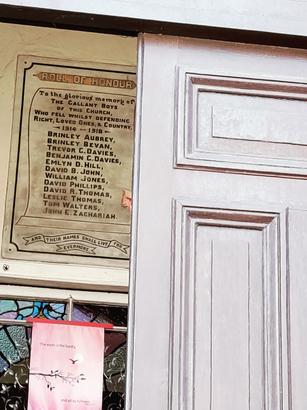 ROLL OF HONOUR
To the glorious memory of
THE GALLANT BOYS
OF THIS CHURCH,
WHO FELL WHILST DEFENDING
RIGHT, LOVED ONES, & COUNTRY,
1914 - 1918
BRINLEY AUBREY,
BRINLEY BEVAN,
TREVOR C. DAVIES,
BENJAMIN C. DAVIES,
EMLYN D. HILL,
DAVID B. JOHN,
WILLIAM JONES,
DAVID PHILLIPS,
DAVID R. THOMAS,
LESLIE THOMAS,
TOM WALTERS,
JOHN E. ZACHARIAH.
AND THEIR NAMES SHALL LIVE FOR
EVERMORE
The earth is the Lord's,